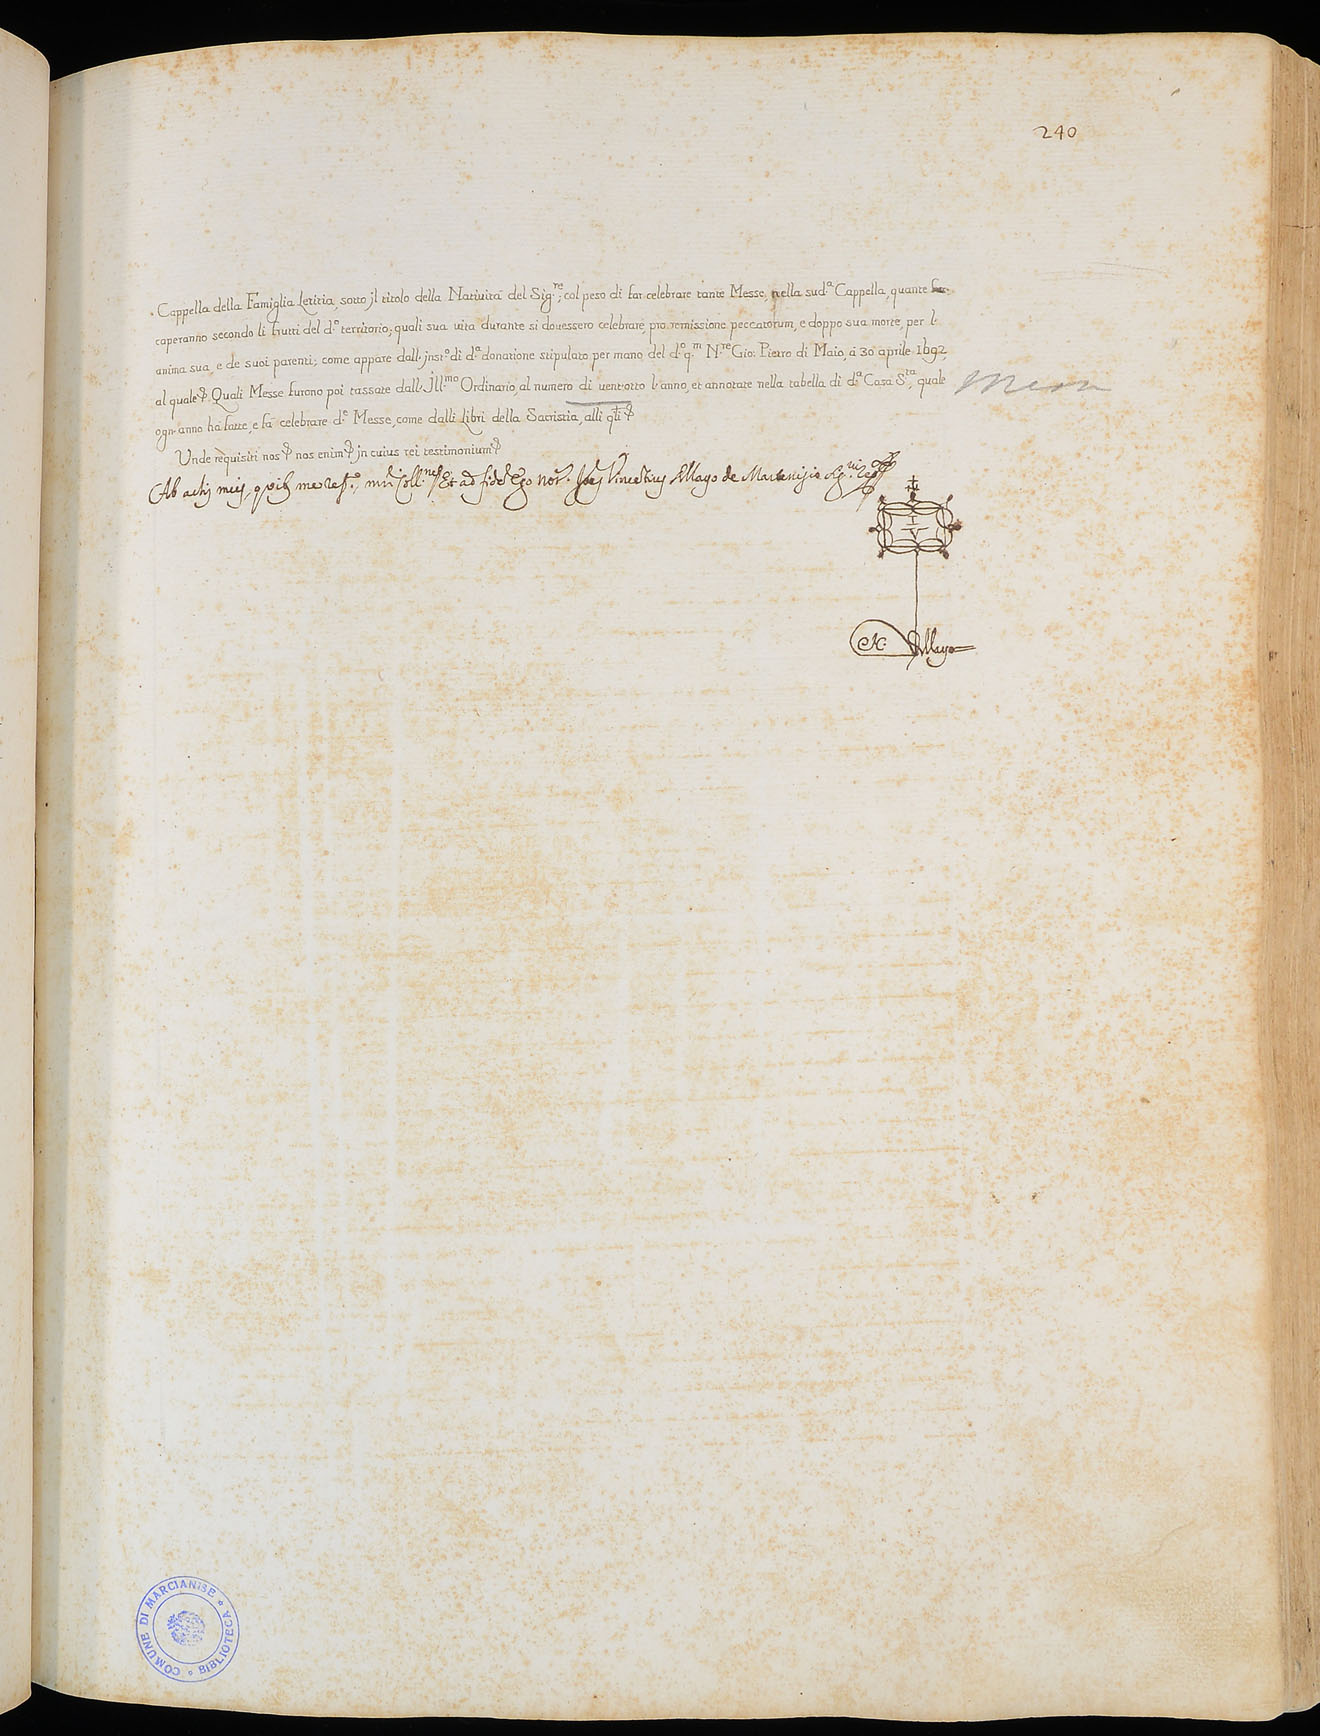 240
Cappella della Famiglia Letitia, sotto jl titolo della Natività del Sig.re; col peso di far celebrare tante Messe, nella sud.a Cappella, quante
caperanno secondo li frutti del d.o territorio; quali sua uita durante si douessero celebrare, pro remissione peccatorum, e doppo sua morte, per l'
anima sua, e de suoi parenti; come appare dall' jnst.o di d.a donatione stipulato per mano del d.o q.m N.re Gio: Pietro di Maio, à 30 aprile 1692,
al quale Quali Messe furono poi tassate dall' Jll.mo Ordinario, al numero di uent'otto l'anno, et annotate nella tabella di d.a Casa S.ta, quale
ogn'anno hà fatte, e fà celebrare d.e Messe, come dalli Libri della Sacristia, alli
Unde requisiti nos nos enim jn cuius rei testimonium
Ab actis meis, Et ad fidem Ego not.r Vincentius Allayo de Marcenisio
I
V
Allayo
COMUNE DI MARCIANISE * BIBLIOTECA *